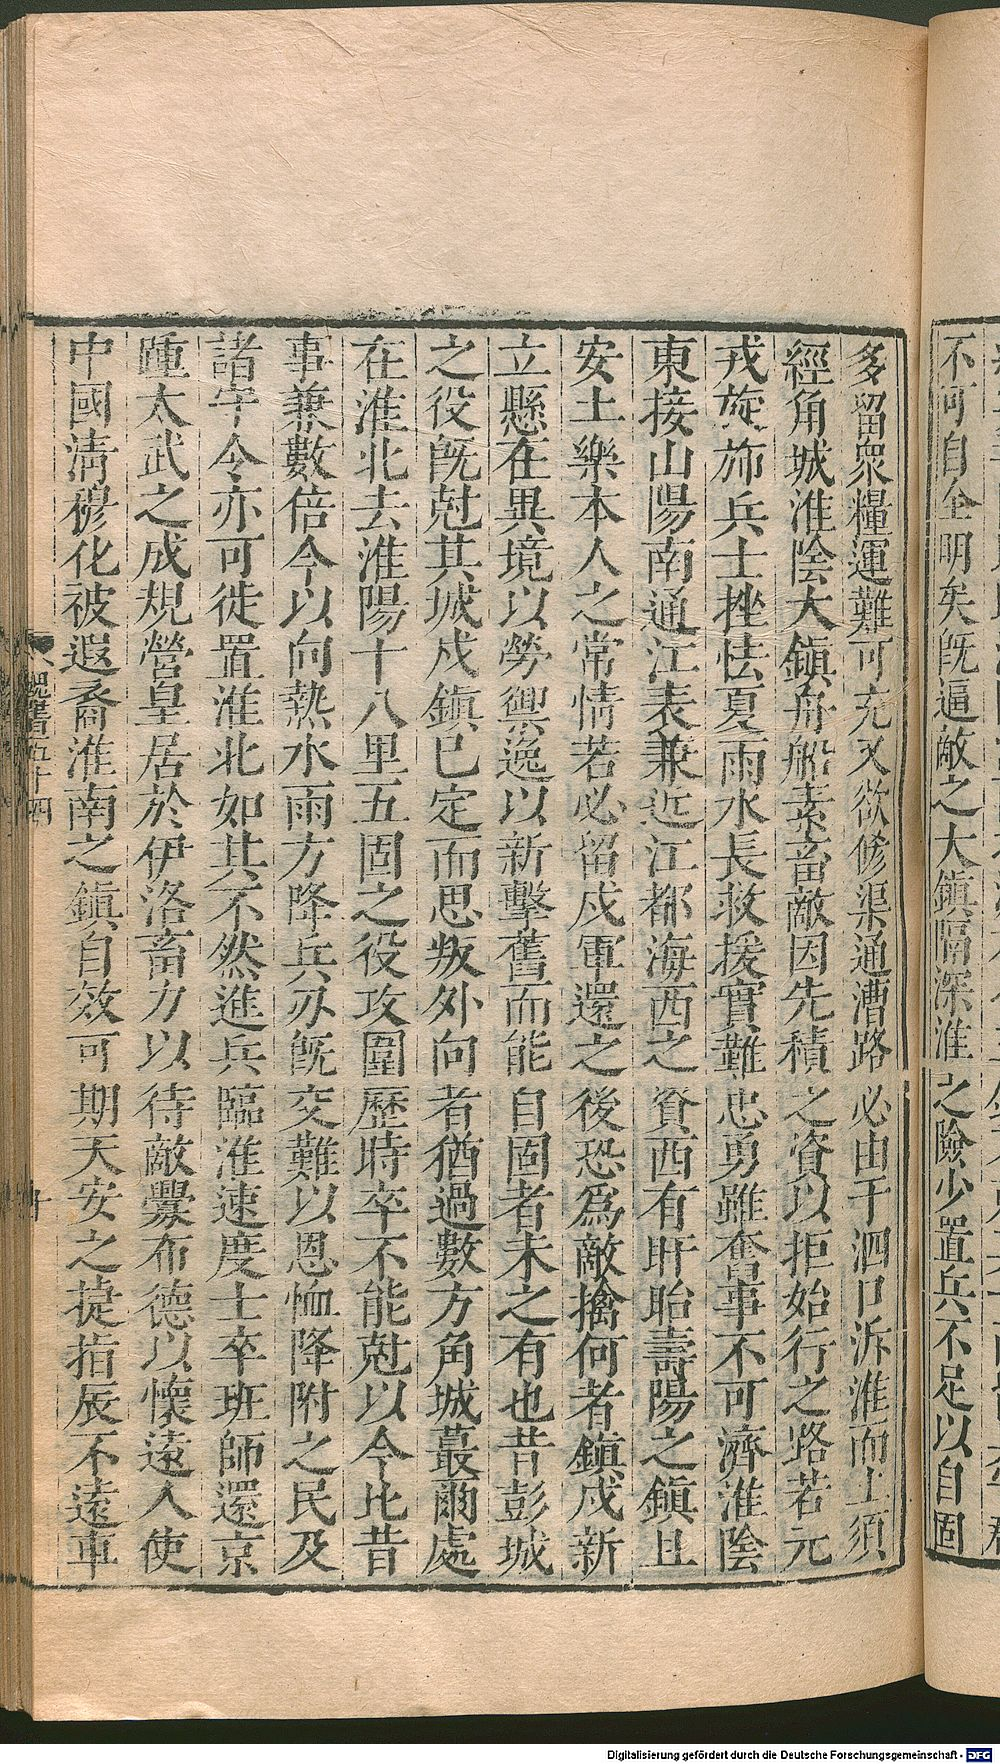 不可自全明矣旣逼敵之大鎮隔深淮之險少置兵不足以自固
多留衆糧運難可充又欲修渠通漕路必由于泗口泝淮而上須
經角城淮陰大鎮舟船素畜敵因先積之資以拒始行之路若元
戎旋旆兵士挫怯夏雨水長救援實難忠勇雖奮事不可濟淮陰
東接山陽南通江表兼近江都海西之資西有盱眙壽陽之鎮且
安土樂本人之常情若必留戍軍還之後恐爲敵擒何者鎮戍新
立懸在異境以勞禦逸以新擊舊而能自固者未之有也昔彭城
之役旣尅其城戍鎮已定而思叛外向者猶過數方角城蕞爾處
在淮北去淮陽十八里五固之役攻圍歷時卒不能尅以今比昔
事兼數倍今以向熱水雨方降兵刃旣交難以恩恤降附之民及
諸守令亦可徙置淮北如其不然進兵臨淮速度士卒班師還京
踵太武之成規營皇居於伊洛畜力以待敵釁布德以懷遠人使
中國清穆化被遐裔淮南之鎮自效可期天安之捷指辰不遠車
魏書五十四
十
Digitalisierung gefördert durch die Deutsche Forschungsgemeinschaft - DFG